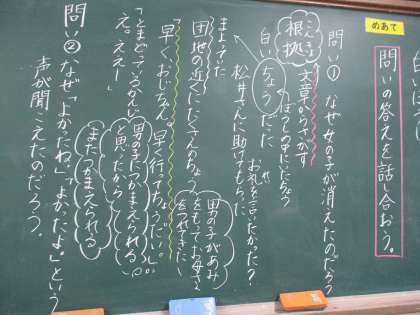 めあて
問いの答えを話し合おう。
問い① なぜ女の子が消えたのだろう
こんきょ
根拠
文章からさがす
ぼうしの中にいたちょう
白いちょうだった
お礼を言いたかった?
松井さんに助けてもらった
まよっていた
団地の近くにたくさんのちょう
男の子があみをもってお母さんをつれてきた
「早く、おじちゃん。早く行ってちょうだい。」
男の子につかまえられると思ったから
またつかまえられる
「ええと、どまどっているうちに
え。ええー」
問い② なぜ「よかったね」「よかったよ。」という
声が聞こえたのだろう。